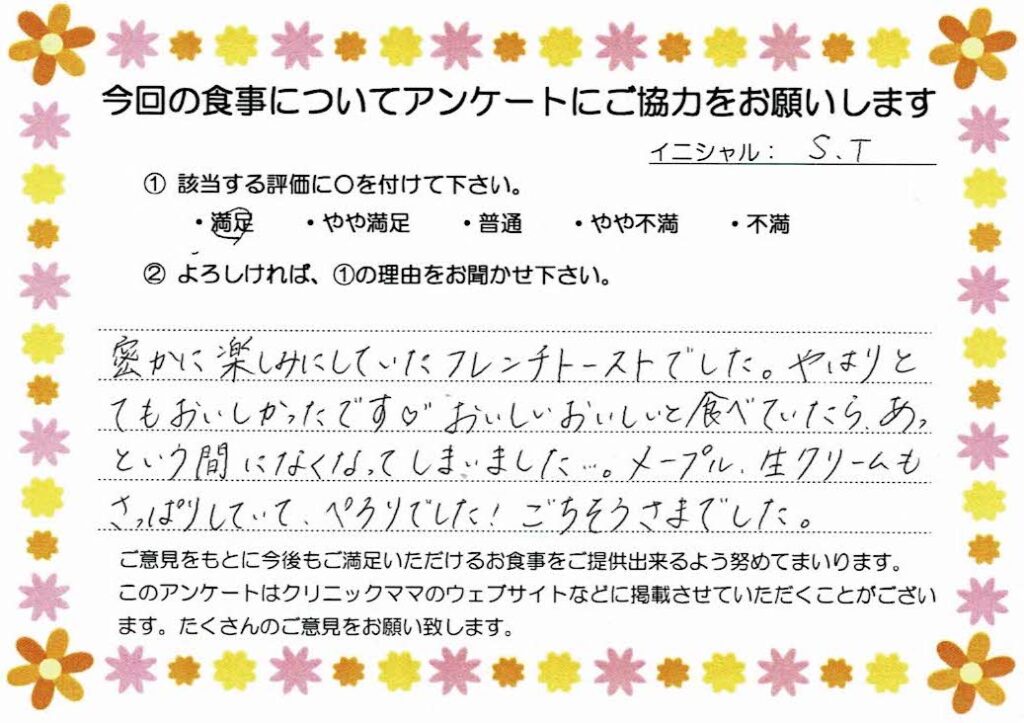 今回の食事についてアンケートにご協力をお願いします
イニシャル： S.T
① 該当する評価に〇を付けて下さい。
・満足 ・やや満足 ・普通 ・やや不満 ・不満
② よろしければ、①の理由をお聞かせ下さい。
密かに楽しみにしていたフレンチトーストでした。やはりと
てもおいしかったです♡ おいしいおいしいと食べていたら、あっ
という間になくなってしまいました…。メープル、生クリームも
さっぱりしていて、ぺろりでした！ごちそうさまでした。
ご意見をもとに今後もご満足いただけるお食事をご提供出来るよう努めてまいります。
このアンケートはクリニックママのウェブサイトなどに掲載させていただくことがござい
ます。たくさんのご意見をお願い致します。